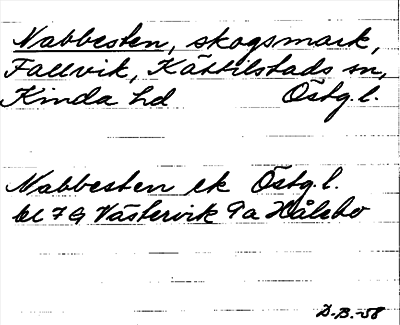 Nabbesten, skogsmark,
Fallvik, Kättilstads sn,
Kinda hd Östg.l.
Nabbesten ek Östg.l.
bl 7 G Västervik 9a Hålebo
D.B.-58